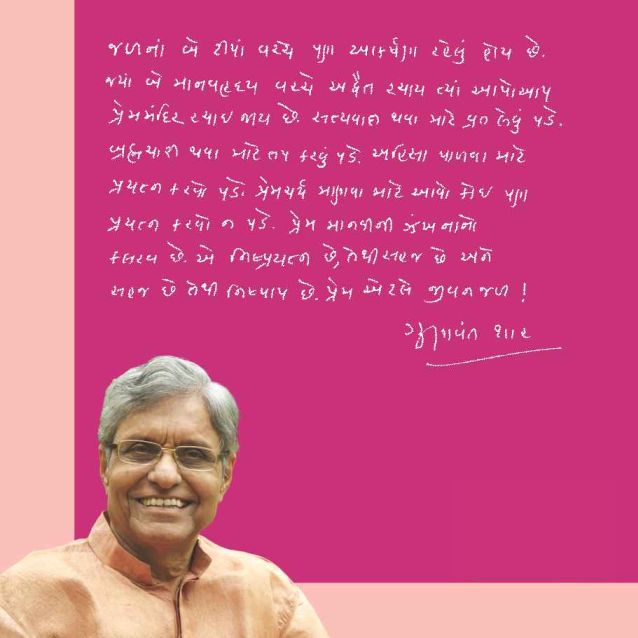 જળનાં બે ટીપાં વચ્ચે પણ આકર્ષણ રહેલું હોય છે.
જ્યાં બે માનવહૃદય વચ્ચે અદ્વૈત રચાય ત્યાં આપોઆપ
પ્રેમમંદિર રચાઇ જાય છે. સત્યવાદી થવા માટે વ્રત લેવું પડે.
બ્રહ્મચારી થવા માટે તપ કરવું પડે. અહિંસા પાળવા માટે
પ્રયત્ન કરવો પડે. પ્રેમપર્વ માણવા માટે આવો કોઇ પણ
પ્રયત્ન કરવો ન પડે. પ્રેમ માનવીની ઝંખનાનો
કલરવ છે. એ નિષ્પ્રયત્ન છે, તેથી સહજ છે અને
સહજ છે તેથી નિષ્પાપ છે. પ્રેમ એટલે જીવનજળ !
ગુણવંત શાહ